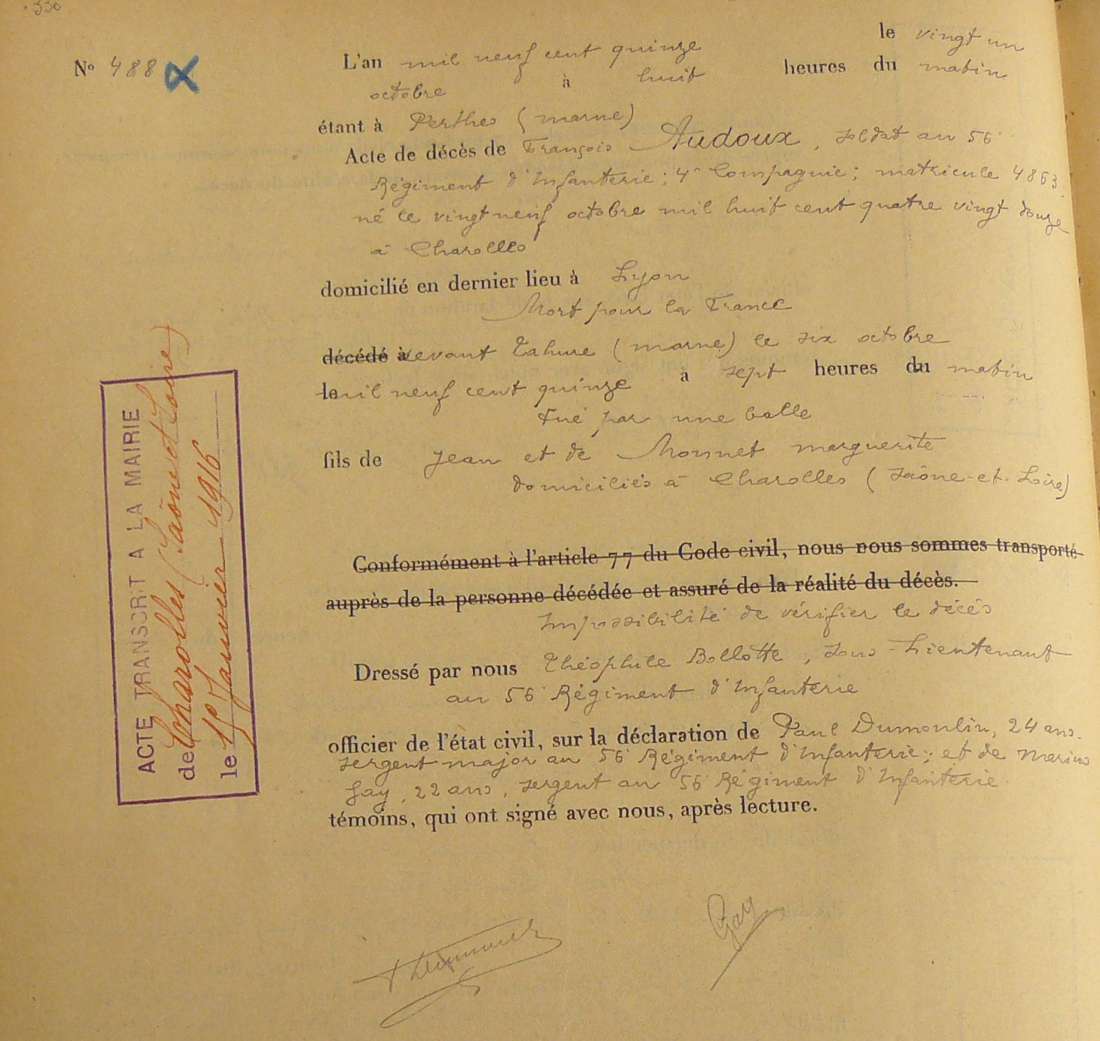 330
L'an mil neuf cent quinze le vingt un
N° 488
octobre à huit heures du matin
étant à Perthes (marne)
Acte de décès de François Audoux, soldat au 56e
Régiment d'Infanterie; 4e Compagnie; matricule 4863
né le vingt neuf octobre mil huit cent quatre vingt douze
à Charolles
domicilié en dernier lieu à Lyon
Mort pour la France
décédé à devant Tahure (marne) le six octobre
le mil neuf cent quinze à sept heures du matin
Tué par une balle
fils de Jean et de Monnet marguerite
domiciliés à Charolles (Saône-et-Loire)
Conformément à l'article 77 du Code civil, nous nous sommes transporté
auprès de la personne décédée et assuré de la réalité du décès.
Impossibilité de vérifier le décès
Dressé par nous Théophile Bollotte, Sous-Lieutenant
au 56e Régiment d'Infanterie
officier de l'état civil, sur la déclaration de Paul Dumoulin, 24 ans,
sergent major au 56e Régiment d'Infanterie; et de Marius
Gay, 22 ans, sergent au 56e Régiment d'Infanterie
témoins, qui ont signé avec nous, après lecture.
Gay
ACTE TRANSCRIT A LA MAIRIE
de Charolles (Saône et Loire)
le 1er Janvier 1916